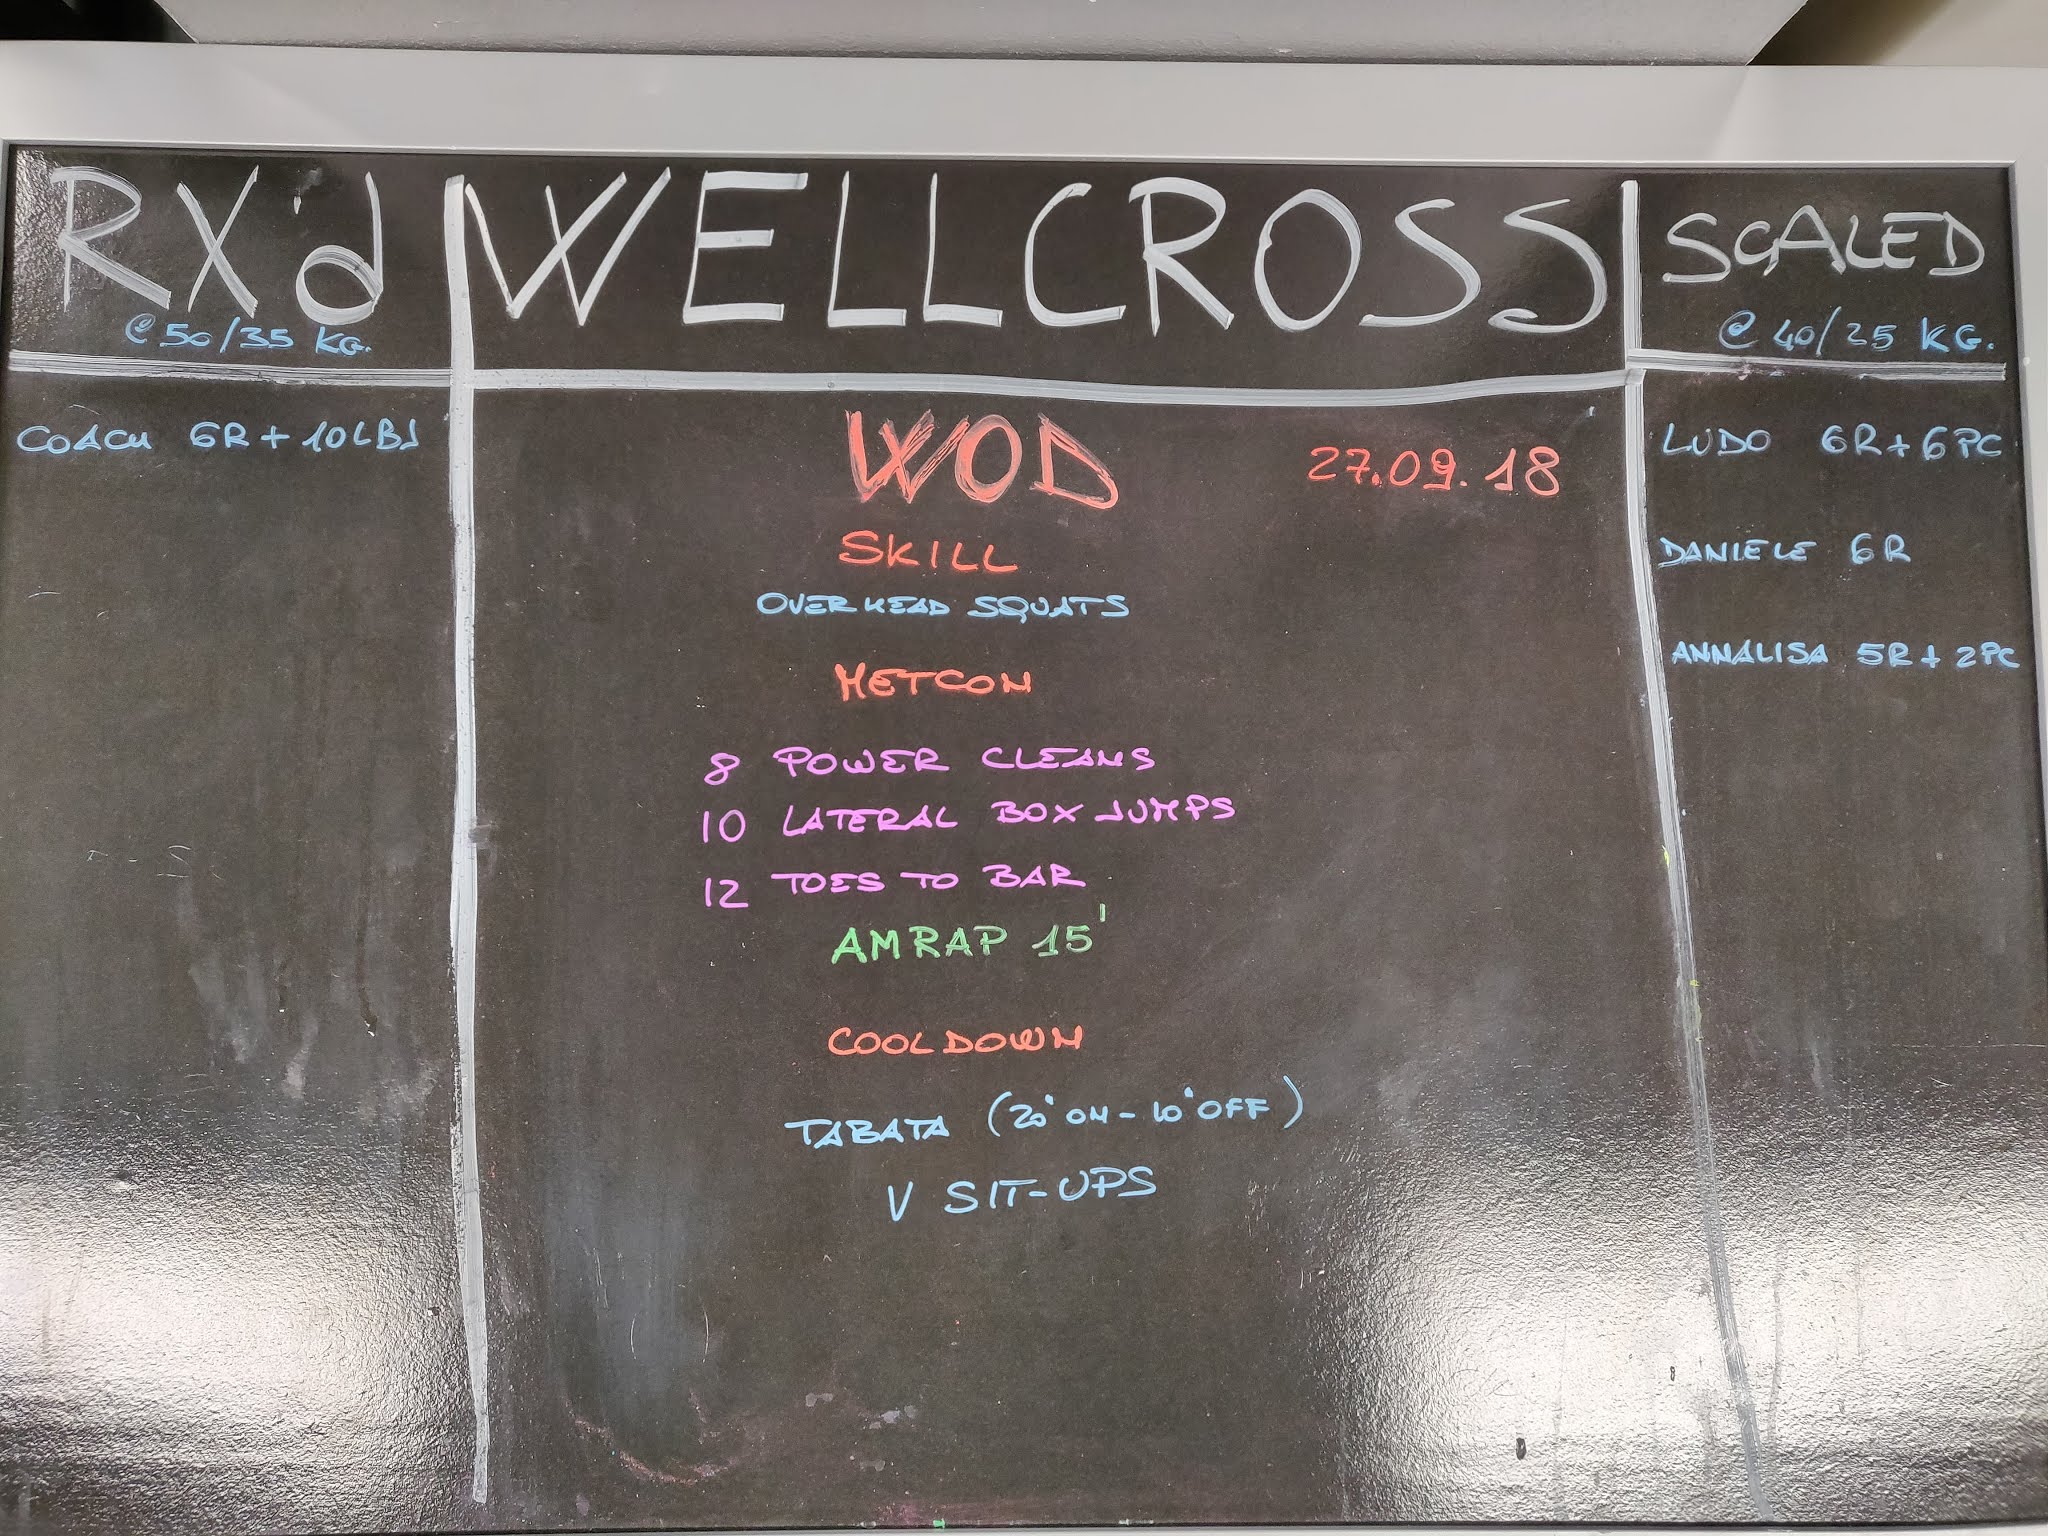 RX'd
@ 50/35 KG.
COACH 6R + 10LBJ
WELLCROSS
WOD 27.09.18
SKILL
OVERHEAD SQUATS
METCON
8 POWER CLEANS
10 LATERAL BOX JUMPS
12 TOES TO BAR
AMRAP 15'
COOLDOWN
TABATA (20" ON - 10" OFF)
V SIT-UPS
SCALED
@ 40/25 KG.
LUDO 6R + 6PC
DANIELE 6R
ANNALISA 5R + 2PC